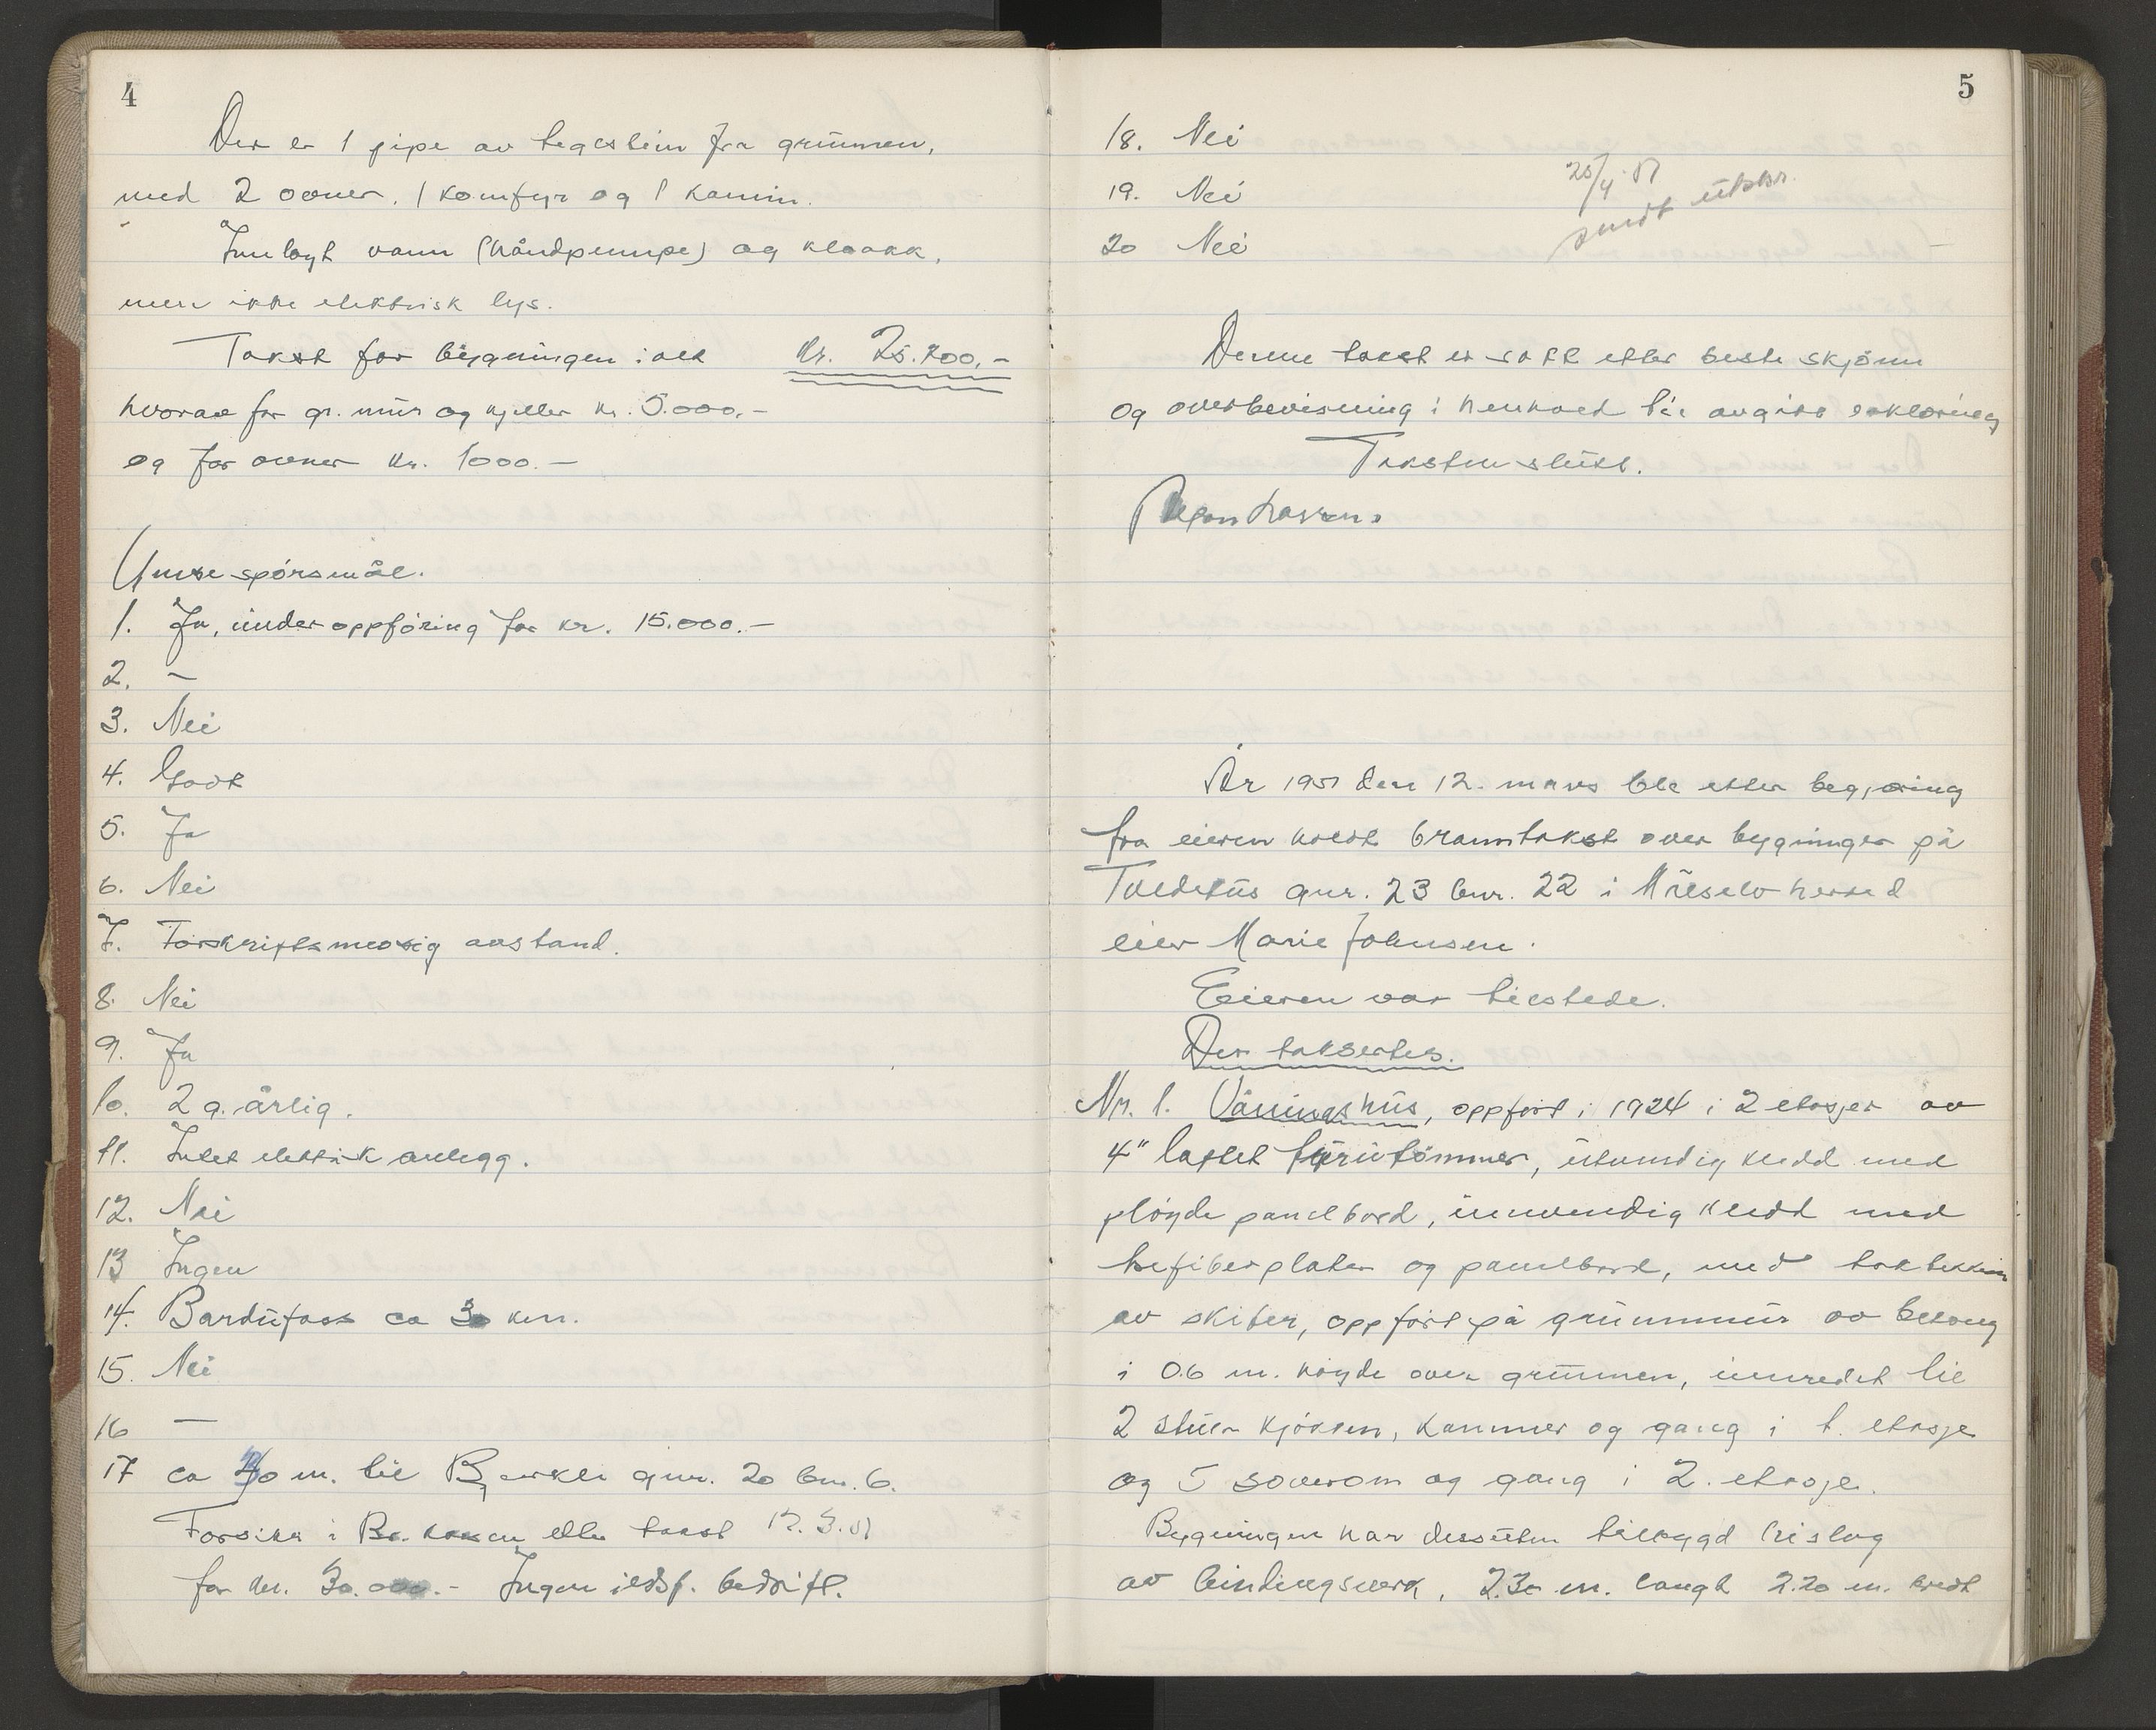 4
Der er 1 pipe av teglstein fra grunnen,
med 2 ovner. 1 komfyr og 1 kamin.
Innlagt vann (håndpumpe) og kloakk,
men ikke elektrisk lys.
Takst for bygningen ialt kr. 25.200,-
hvorav for gr. mur og kjeller kr. 5.000,-
og for ovner kr. 1000.-
Ymse spörsmål.
1. Ja, under oppföring for kr. 15.000.-
2. -
3. Nei
4. Godt
5. Ja
6. Nei
7. Forskriftsmessig avstand.
8. Nei
9. Ja
10. 2 g. årlig.
11. Intet elektrisk anlegg.
12. Nei
13 Ingen
14. Bardufoss ca 30 km.
15. Nei
16 —
17 ca 40 m. til Bjerkli gnr. 20 bnr. 6.
Forsikr i Br. kassen etter takst 12.3.51
for kr. 30.000.- Ingen ildsf. bedrift.
5
18. Nei
19. Nei
20 Nei
20/4 51
sendt utskr.
Denne takst er satt etter beste skjönn
og overbevisning i henhold til avgitt erklæring
Taksten slutt.
År 1951 den 12. mars ble etter begjæring
fra eieren holdt branntakst over bygninger på
gnr. 23 bnr. 22 i Målselv herred
eier Marie Johnsen.
Eieren var tilstede.
Der takseres.
Nr. 1. Våningshus, oppfört i 1924 i 2 etasjer av
4" laftet furutömmer, utvendig kledd med
plöyde panelbord, innvendig kledt med
trefiberplater og panelbord, med taktekking
av skifer, oppfört på grunnmur av betong
i 0.6 m. höyde over grunnen, innredet til
2 stuer kjökken, kammer og gang i 1. etasje
og 5 soverom og gang i 2. etasje.
Bygningen har dessuten tilbygd bislag
av bindingsverk, 2.30 m. langt 2.20 m. bredt